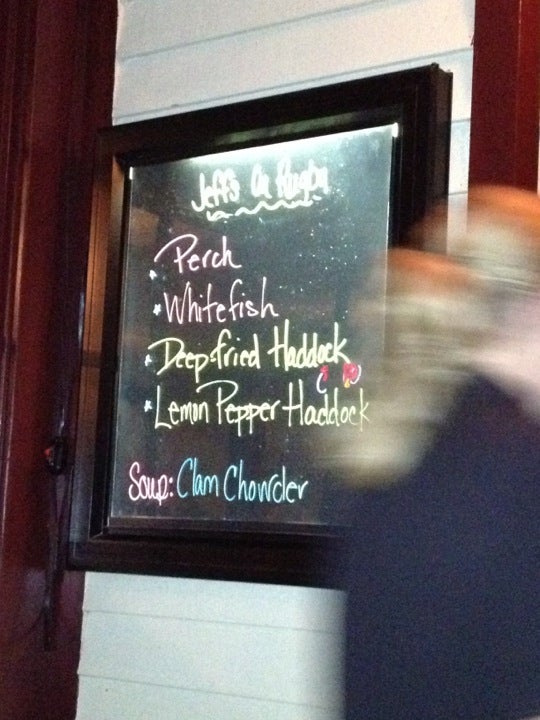 Jeff's On Rugby
* Perch
* Whitefish
* Deep-fried Haddock
* Lemon Pepper Haddock
Soup: Clam Chowder